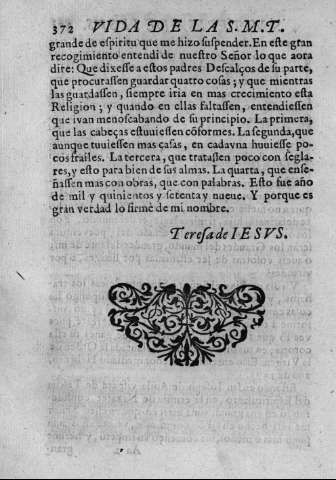 372 VIDA DE LA S.M.T.
grande de espiritu que me hizo suspender. En este gran
recogimiento entendi de nuestro Señor lo que aora
dire: Que dixesse a estos padres Descalços de su parte,
que procurassen guardar quatro cosas; y que mientras
las guardassen, siempre iria en mas crecimiento esta
Religion; y quando en ellas faltassen, entendiessen
que ivan menoscabando de su principio. La primera,
que las cabeças estuuiessen cõformes. La segunda, que
aunque tuuiessen mas casas, en cada vna huuiesse po-
cos frailes. La tercera, que tratassen poco con segla-
res, y esto para bien de sus almas. La quarta, que ense-
ñassen mas con obras, que con palabras. Esto fue año
de mil y quinientos y setenta y nueue. Y porque es
gran verdad lo firmè de mi nombre.
Teresa de IESVS.